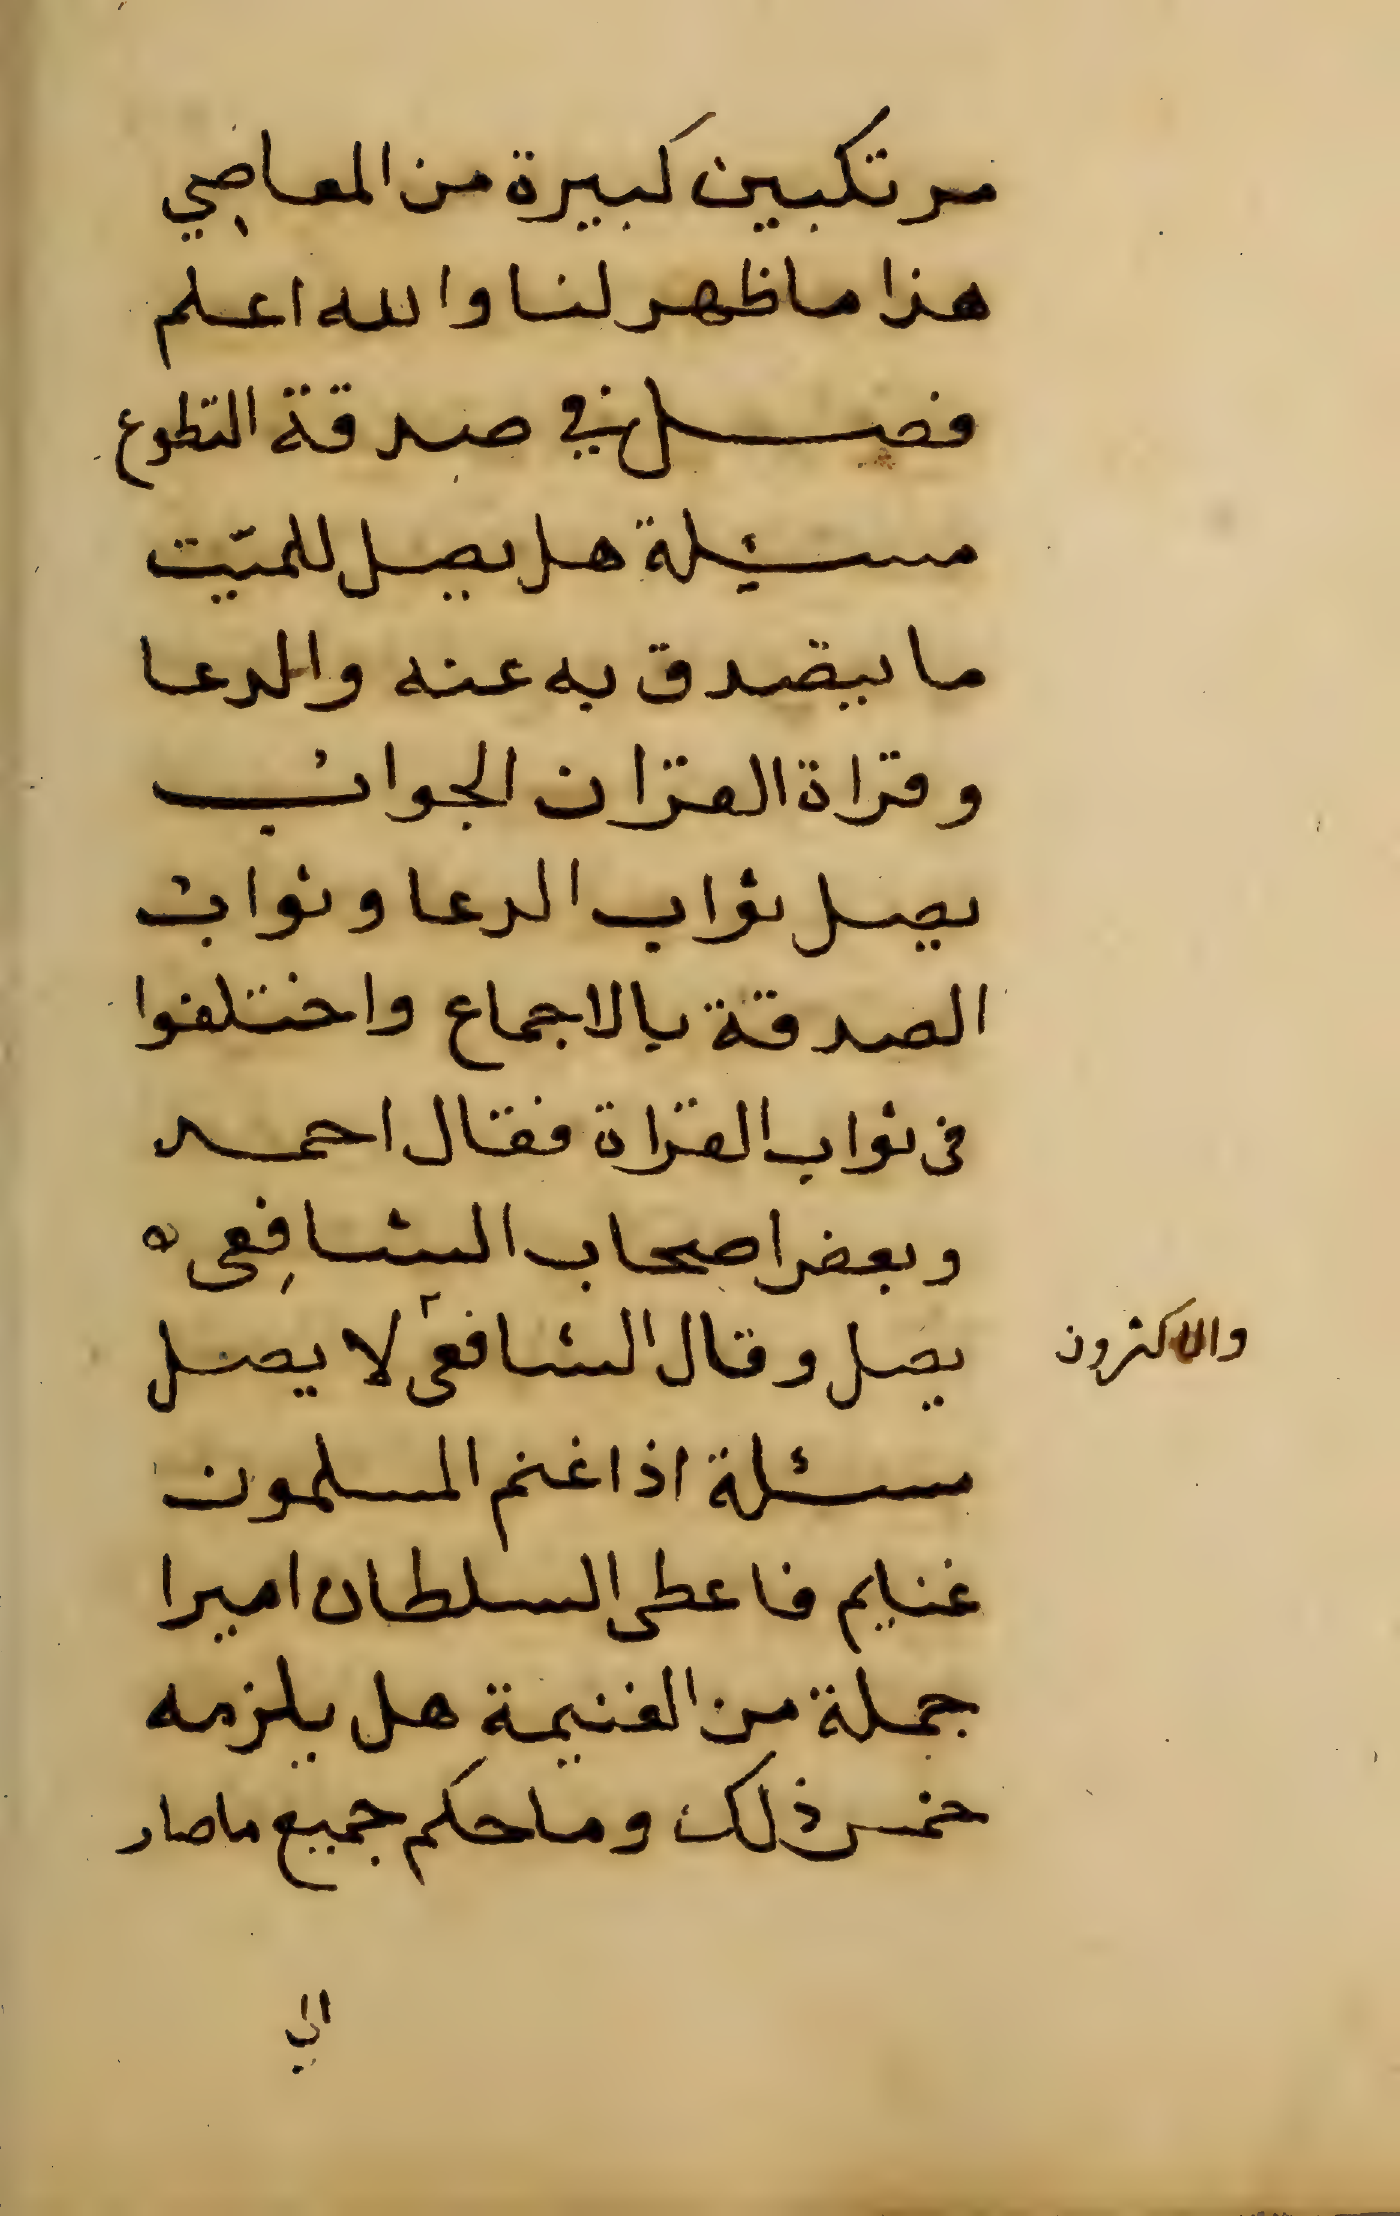 مرتكبين كبيرة من المعاصي
هذا ما ظهر لنا والله اعلم
فصل في صدقة التطوع
مسئلة هل يصل للميّت
ما يتصدق به عنه والدعا
وقراة القران الجواب
يصل ثواب الدعا وثواب
الصدقة بالاجماع واختلفوا
فى ثواب القراة فقال احمد
وبعض اصحاب الشافِعى ه
يصل وقال الشافعى لا يصل
والاكثرون
مسئلة اذا غنم المسلمون
غنايم فاعطى السلطان اميرا
جملة من الغنيمة هل يلزمه
خمس ذلك وما حكم جميع ما صار
الي